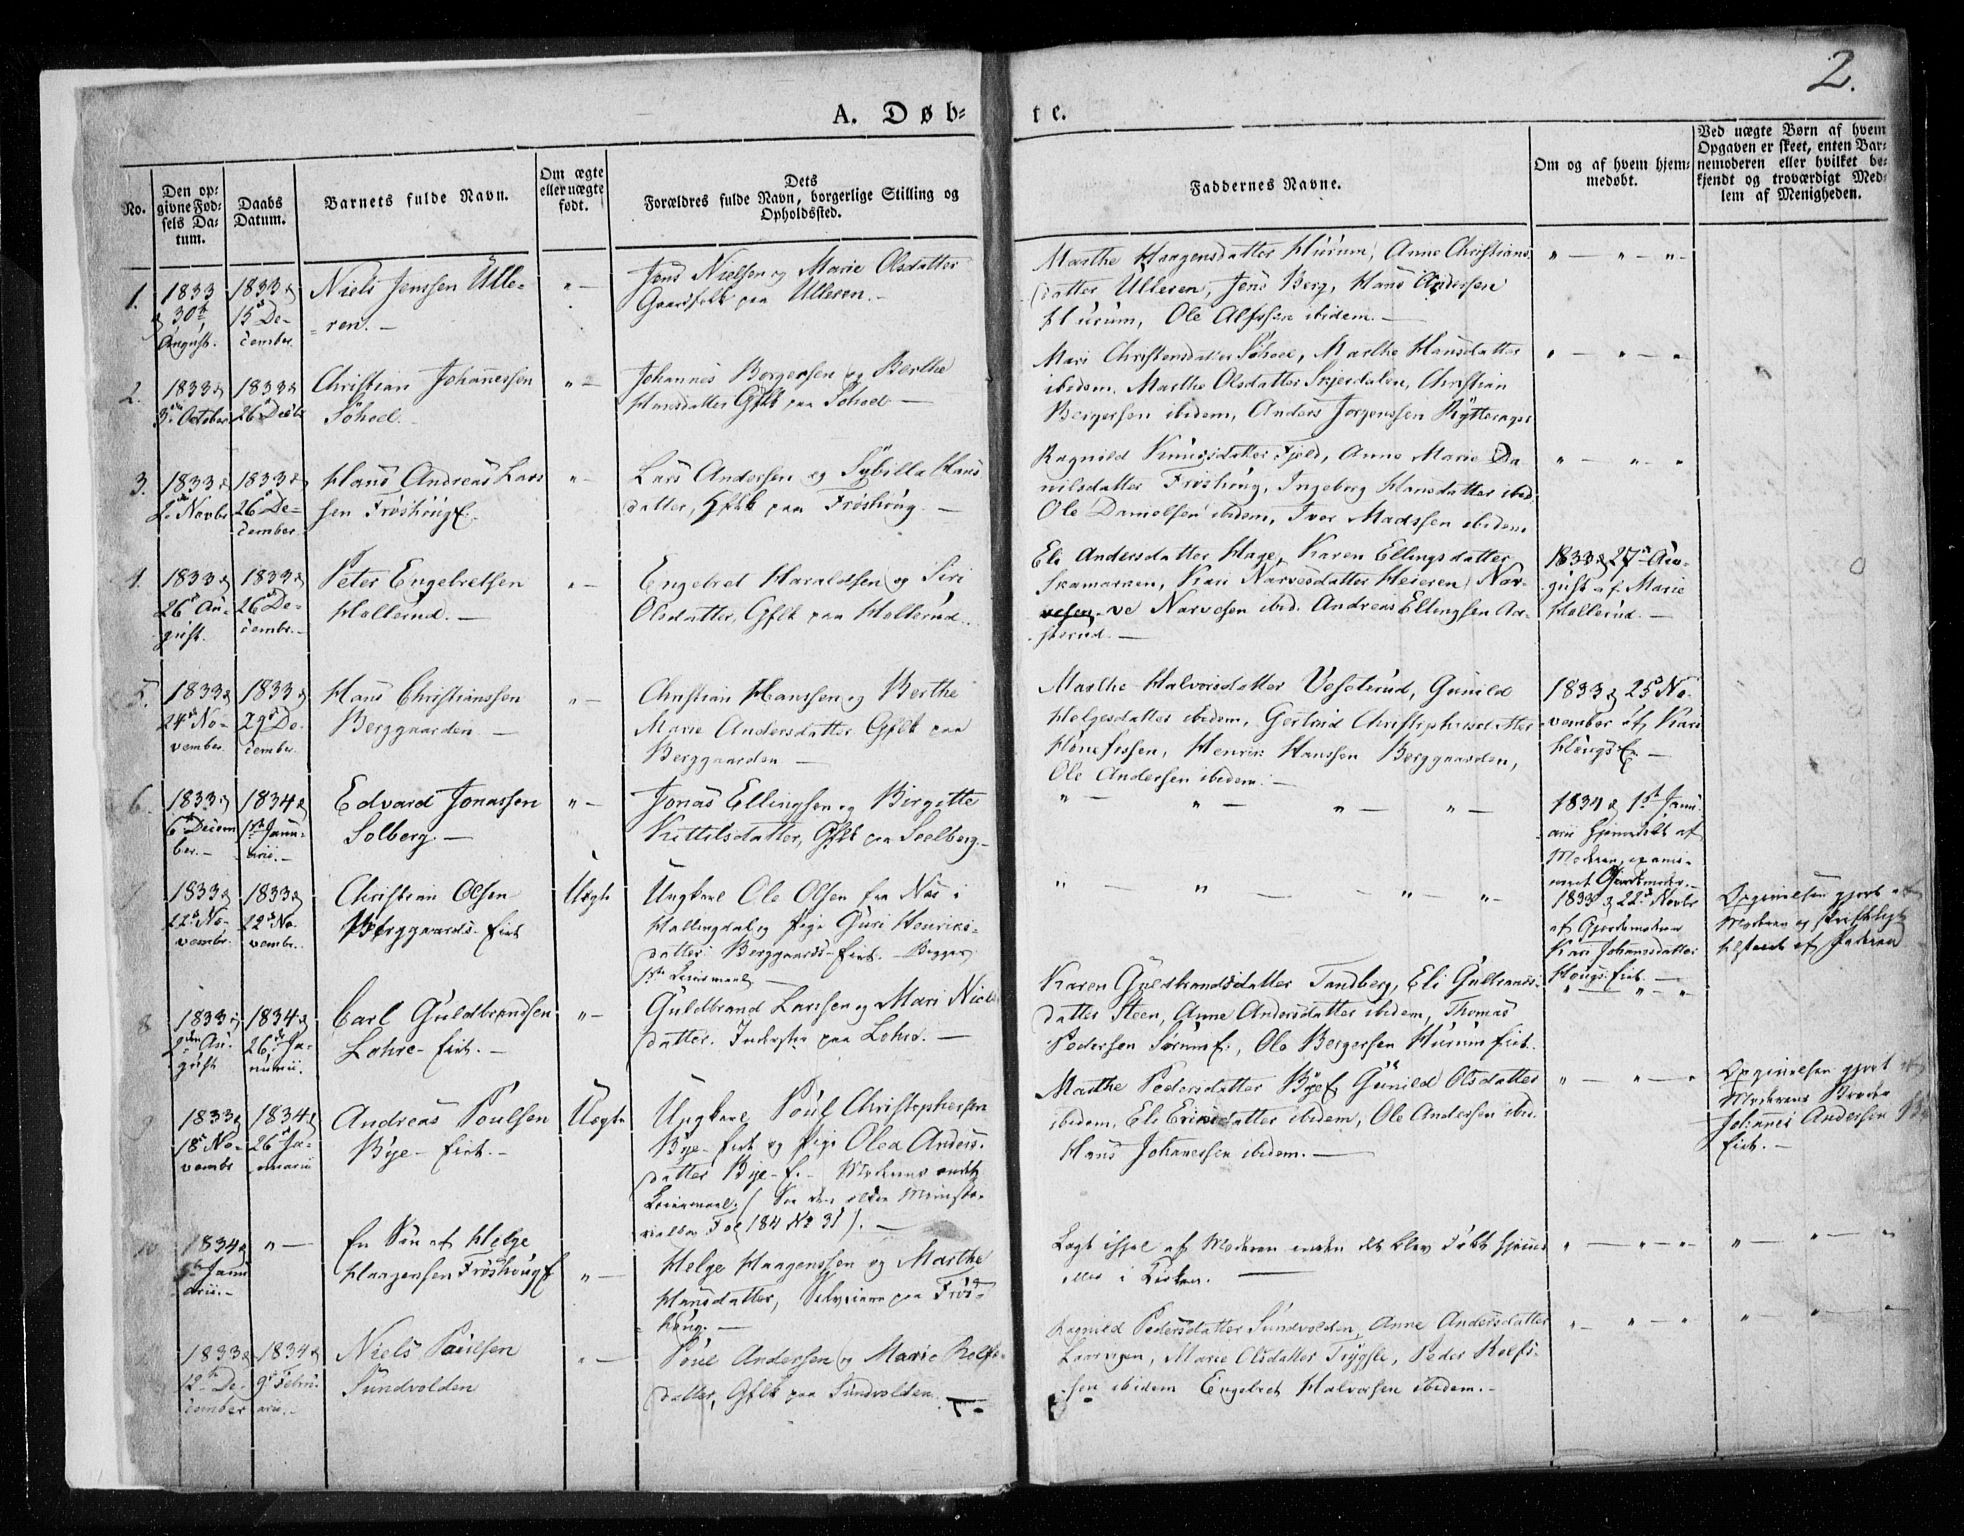 2.
A. Døb-
te.
No.
Den opgivne Fødsels Datum.
Daabs Datum.
Barnets fulde Navn.
Om ægte eller uægte født.
Dets Forældres fulde Navn, borgerlige Stilling og Opholdssted.
Faddernes Navne.
Om og af hvem hjemmedøbt.
Ved uægte Børn af hvem Opgaven er skeet, enten Barnemoderen eller hvilket bekjendt og troværdigt Medlem af Menigheden.
1.
1833 d 30te August.
1833 d 15de December.
Niels Jenssen Ulle-
ren. —
" —
Jens Nielsen og Marie Olsdatter
Gaardfolk paa Ulleren. —
Marthe Haagensdatter Hurum, Anne Christians-
datter Ulleren, Jens Berg, Hans Andersen
Hurum, Ole Alfssen ibidem. —
" — " — " -
2.
1833 d 3die October
1833 d 26de Decbr
Christian Johanessen
Søhoel. —
" —
Johannes Borgersen og Berthe
Hansdatter Gflk paa Søhoel —
Mari Christensdatter Søhoel, Marthe Hansdatter
ibidem, Marthe Olsdatter Skjerdalen, Christian
Bergersen ibidem, Anders Jorgenssen Rytterager
" — " — "
3.
1833 d 2de Novbr
1833 d 26de December.
Hans Andreas Lars
sen Frøshoug E.
" —
Lars Andersen og Sybilla Hans
datter, Gflk paa Frøshoug. —
Ragnild Knudsdatter Fjeld, Anne Marie Da-
nilsdatter Frøshoug, Ingeborg Hansdatter ibid
Ole Danielsen ibidem, Iver Madssen ibidem
" — " — "
4.
1833 d 26de August.
1833 d 26de Decembr. —
Peter Engebretsen
Hallerud. —
" —
Engebret Haraldsen og Siri
Olsdatter, Gflk paa Hallerud.
Eli Andersdatter Hage, Karen Ellingsdatter
Skamarken, Kari Narvesdatter Heieren, Nar-
vesen ve Narvesen ibid. Andreas Ellingsen Aa-
serud. —
1833 d 27de Au-
gust af Marie
Hallerud. —
5.
1833 d 24de November
1833 d 29de December.
Hans Christianssen
Berggaarden —
" —
Christian Hanssen og Berthe
Marie Andersdatter Gflk paa
Berggaarden —
Marthe Halvorsdatter Veseterud, Gunild
Helgesdatter ibidem, Gertrud Christophersdatter
Hønefossen, Henrik Hanssen Berggaarden,
Ole Andersen ibidem. —
1833 d 25de No-
vember af Kari
Hougs E. —
6.
1833 d 6te December. —
1834 d 1ste Januarii. —
Edvard Jonassen
Solberg. —
" —
Jonas Ellingsen og Birgitte
Kittilsdatter, Gflk paa Soelberg. —
" — " — " — " —
1834 d 1ste Janu-
arii hjemmedøbt af
Moderen, exami-
neret Gjordemoder. —
1833 d 22de November.
1833 d 22de Novembr.
Christian Olsen
Berggaards-Eiet
Uægte
Ungkarl Ole Olsen fra Næs i
Hallingdal og Pige Guri Henriks-
datter Berggaards-Eiet. — Begges
1ste Leiermaal —
" — " — " — "
1833 d 22de Novbr
af Gjordemoderen
Kari Johansdatter
Hougs-Eiet —
Opgivelsen gjort af
Moderen og skriftligt
tilstaaet af Faderen
8
1833 d 2den August
1834 d 26de Januarii.
Carl Guldbrandsen
Lohre-Eiet. —
" —
Guldbrand Larssen og Mari Niels
datter. Inderster paa Lohre. —
Karen Guldbrandsdatter Tandberg, Eli Gulbrands-
datter Steen, Anne Andersdatter ibidem, Thomas
Pedersen Sørum E., Ole Bergersen Hurum Eiet.
" — " — "
9
1833 d 18de Novembr
1834 d 26de Januarii
Andreas Poulsen
Bye-Eiet. —
Uægte
Ungkarl Poul Christophersen
Bye-Eiet og Pige Olea Anders-
datter Bye-E. — Moderens andet
Leiermaal. (See den ældre Ministe-
rialbog Fol 184 No 31). —
Marthe Pedersdatter Bye E. Gunild Olsdatter
ibidem, Eli Ericsdatter ibidem, Ole Andersen ibi-
Hans Johanessen ibidem. —
" — " — "
Opgivelsen gjort af
Moderens Broder
Johannes Andersen
Eiet. —
10
1834 d Januarii. —
" —
En Søn af Helge
Haagensen Frøshoug E
" —
Helge Haagenssen og Marthe
Hansdatter, Selveiere paa Frøs-
houg. —
Lagt ihjel af Moderen inden det blev døbt hjemme
eller i Kirken. —
" — " — "
" — " — "
1833 d 12te December
1834 d 9de Februarii. —
Niels Paulsen
Sundvolden
" —
Poul Andersen og Marie Rolfs-
datter, Gflk paa Sundvolden. —
Ragnild Pedersdatter Sundvolden, Anne Andersdatter
Laarvigen, Marie Olsdatter Trøgsle, Peder Rolfs-
sen ibidem Engebret Halvorsen ibidem. —
" — " — "
" — " — "